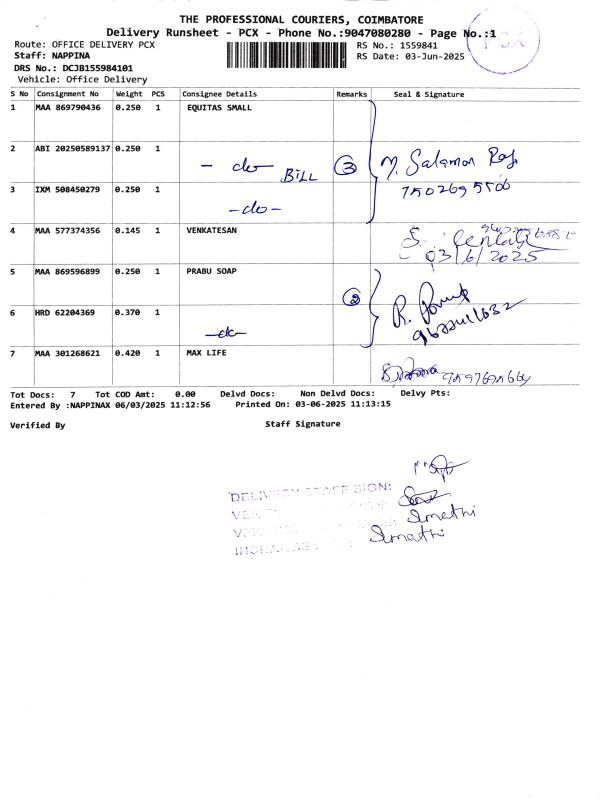 THE PROFESSIONAL COURIERS, COIMBATORE
Delivery Runsheet - PCX - Phone No.:9047080280 - Page No.:1
Route: OFFICE DELIVERY PCX RS No.: 1559841
Staff: NAPPINA RS Date: 03-Jun-2025
DRS No.: DCJB155984101
Vehicle: Office Delivery
S No Consignment No Weight PCS Consignee Details Remarks Seal & Signature
1 MAA 869790436 0.250 1 EQUITAS SMALL
2 ABI 20250589137 0.250 1
- do - BILL 3 M. Salamon Raj
3 IXM 508450279 0.250 1
-do-
4 MAA 577374356 0.145 1 VENKATESAN
03/6/2025
5 MAA 869596899 0.250 1 PRABU SOAP
2
6 HRD 62204369 0.370 1
-do-
7 MAA 301268621 0.420 1 MAX LIFE
Tot Docs: 7 Tot COD Amt: 0.00 Delvd Docs: Non Delvd Docs: Delvy Pts:
Entered By :NAPPINAX 06/03/2025 11:12:56 Printed On: 03-06-2025 11:13:15
Verified By Staff Signature
DELIVERY STAFF SIGN:
Sumathi
Sumathi